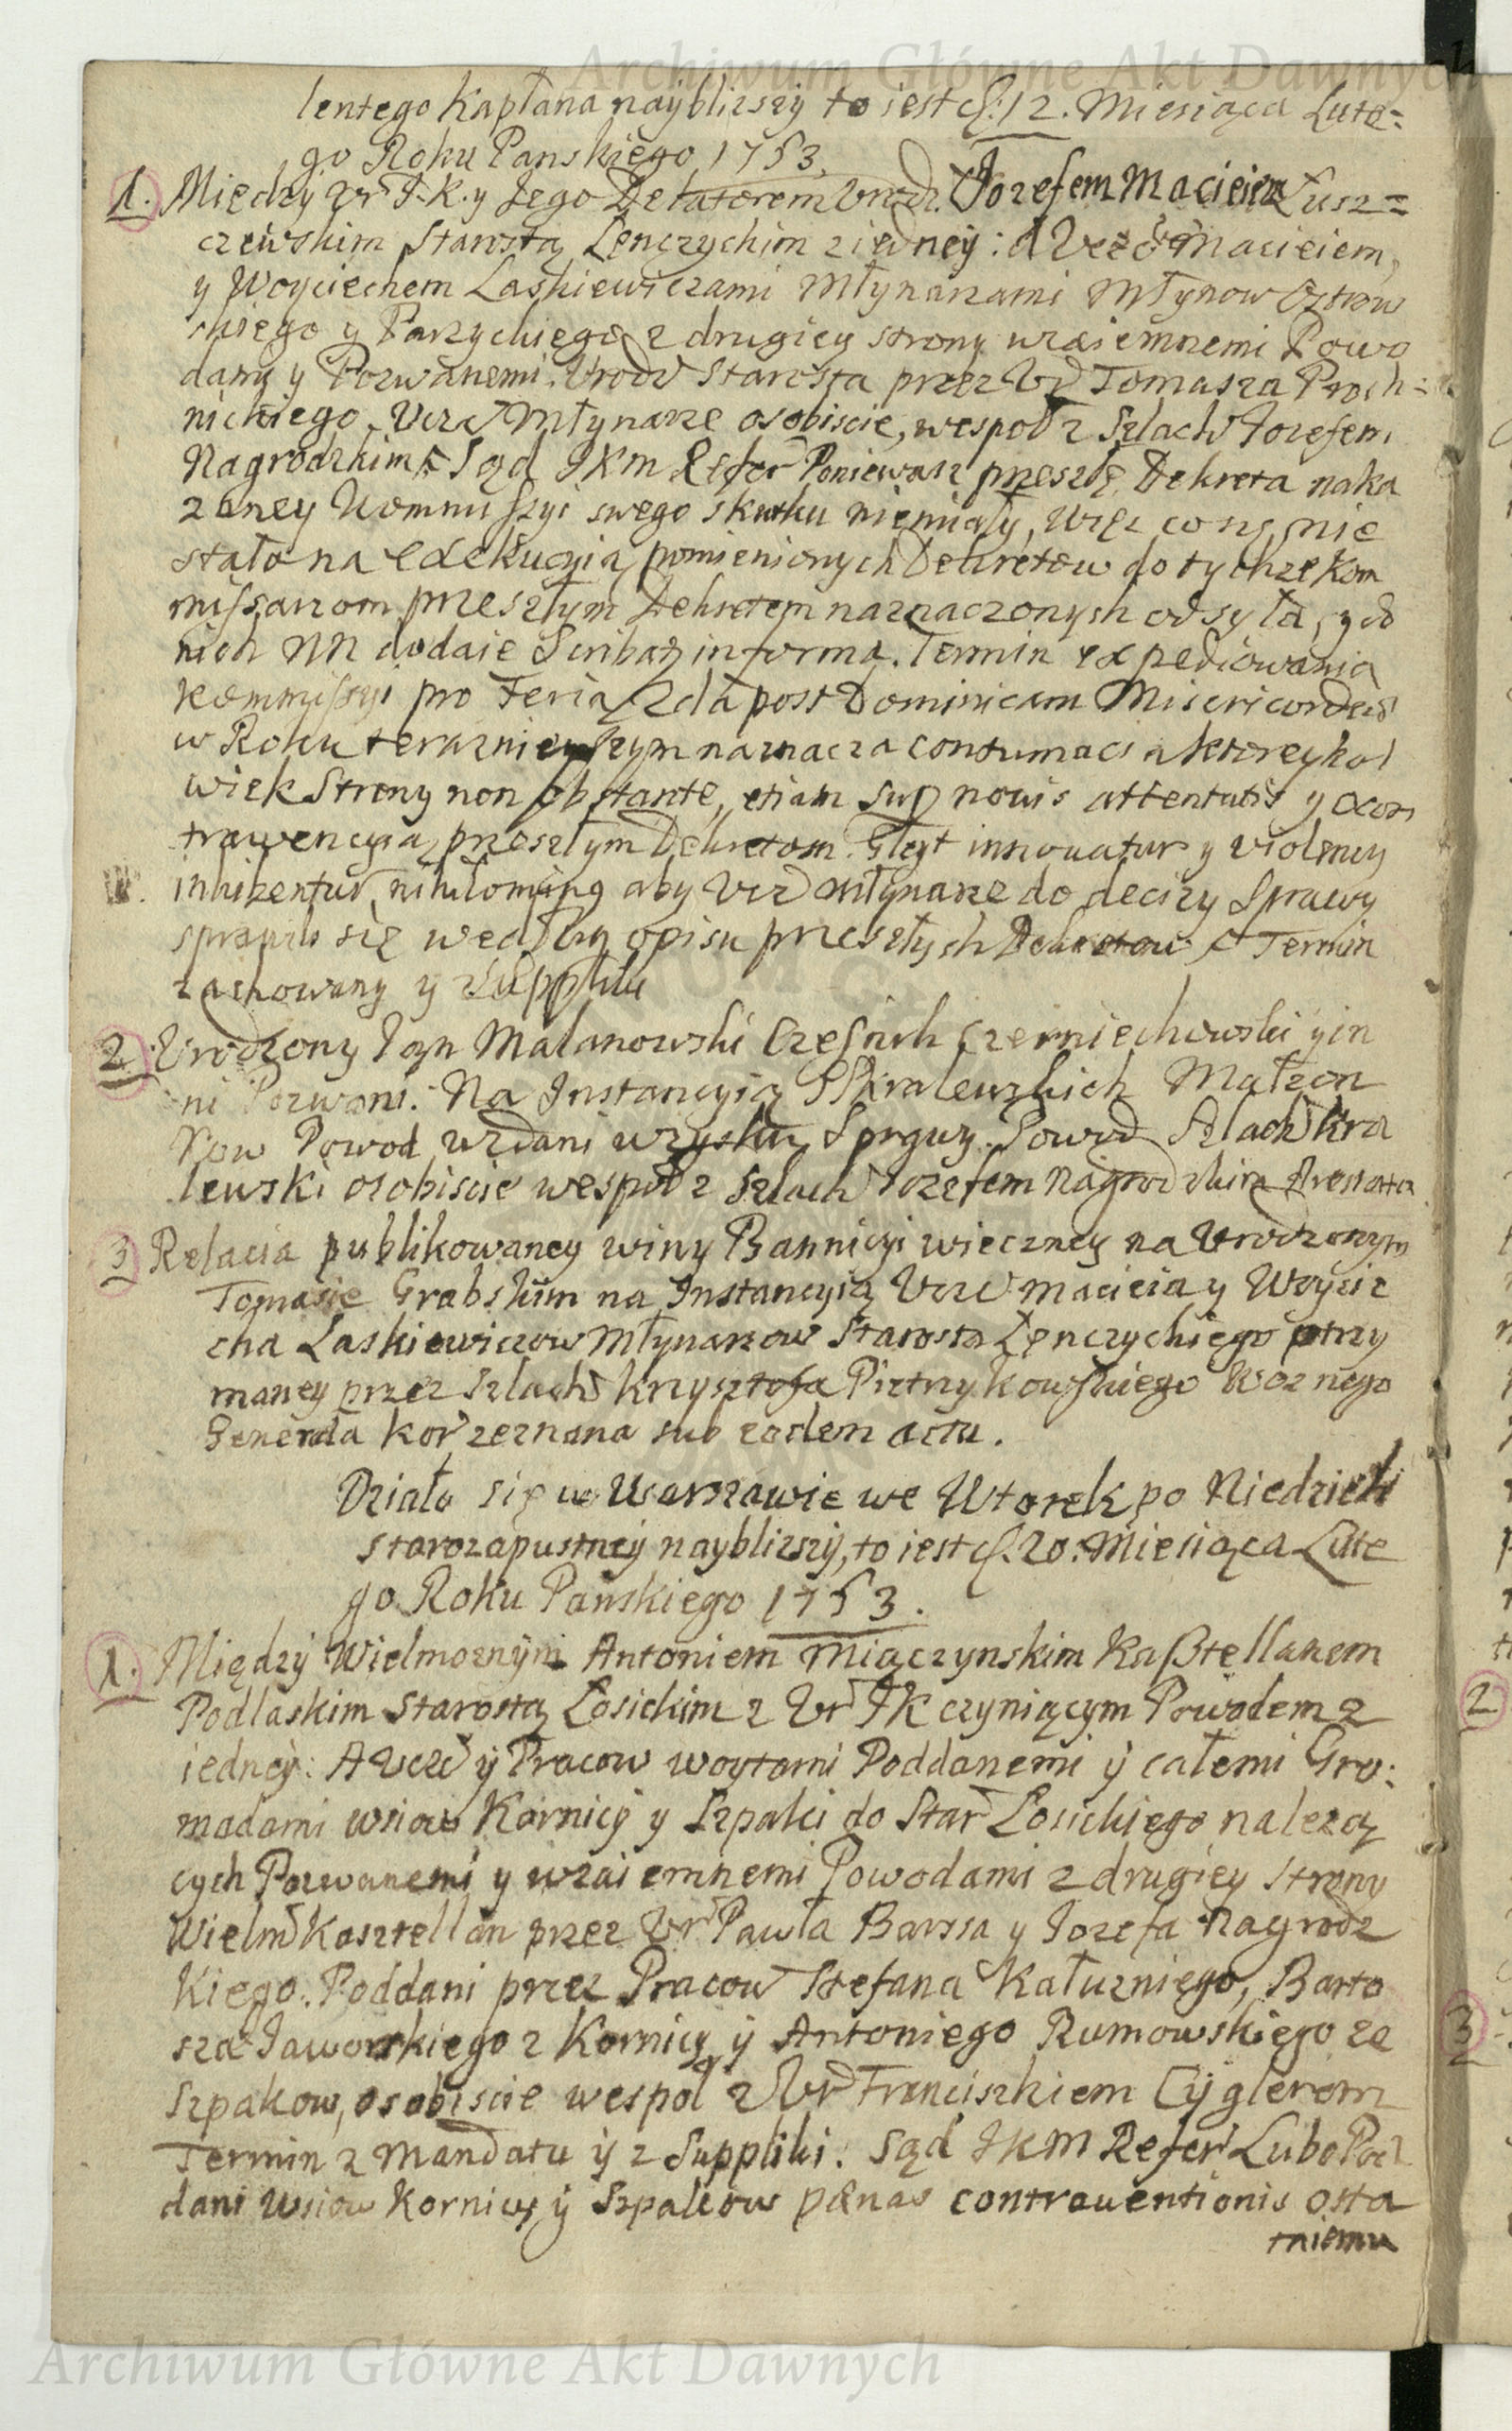 Archiwum Główne Akt Dawnych
lentego Kapłana nayblizszÿ to iest d. 12. Miesiąca Lute=
go Roku Panskiego 1753.
1. Między Ur J.K. y Jego Delatorem Urodz. Jozefem Macieiem Łusz=
czewskim Starostą Łenczyckim z iedney: a Ucz Macieiem
y Woyciechem Laskiewiczami Młynarzami Młynow Ostrow
skiego y Parzyckiego z drugiey strony wzaiemnemi Powo
dami y Pozwanemi. Urodz Starosta przez Ur Tomasza Proch=
nickiego. Ucz Młynarze osobiscie, wespoł z Szlach Jozefem
Nagrodzkim. Sąd JKM Refer Poniewasz przeszłe Dekreta naka
zaney Kommissyi swego skutku niemiały, więc co się nie
stało na exekucyią pomienionych Dekretow do tychze Kom
missarzom przeszłym Dekretem naznaczonych odsyła, y do
nich NN dodaie Scribą in forma. Termin expediowania
Kommissyi pro Feria 2da post Dominicam Misericordiae
w Roku teraznieyszym naznacza contumacia ktoreykol
wiek Strony non obstante, etiam sup novis attentatis y kon
trawencyią przeszłym Dekretom. Gleyt innovatur y violency
inhibentur, nihilominus aby Ucz Młynarze do decizy Sprawy
sprawili się według opisu przeszłych Dekretow. Termin
zachowany y z Suppliki
2. Urodzony Jan Malanowski Czesnik Czerniechowski y in
ni Pozwani. Na Instancyią SS Kralewskich Małzon
kow Powod wzdani wzysku Sprawy. Powod Szlach Kra
lewski osobiscie wespoł z Szlach Jozefem Nagrodzkim Arestata
3 Relacia publikowaney winy Bannicyi wieczney na Urodzonym
Tomasie Grabskim na Instancyią Ucz Macieia y Woycie
cha Laskiewiczow Młynarzow Starosta Łenczyckiego otrzy
maney przez Szlach Krzysztofa Pietrzykowskiego Woznego
Generała Kor zeznana sub eodem actu.
Działo się w Warszawie we Wtorek po Niedzieli
starozapustney nayblizszÿ, to iest d. 20. Miesiąca Lute
go Roku Panskiego 1753.
1. Między Wielmoznÿm Antoniem Miączynskim Kasztellanem
Podlaskim Starostą Łosickim z Ur JK czyniącym Powodem z
iedneÿ: A Ucz ÿ Pracow woytami Poddanemi ÿ całemi Gro:
madami wsiow Kornicÿ y Szpaki do Star Łosickiego nalezą
cych Pozwanemi y wzaiemnemi Powodami z drugiey Strony
Wielm Kasztellan przez Ur Pawła Barssa y Jozefa Nagrodz
kiego. Poddani przez Pracow Stefana Kałuzniego, Barto
sza Jaworskiego z Kornicy ÿ Antoniego Rumowskiego ze
Szpakow, osobiscie wespoł z Ur Franciszkiem Cÿglerem
Termin z Mandatu ÿ z Suppliki. Sąd JKM Refer Lubo Pod
dani wsiow Kornicy ÿ Szpakow pænas contraventionis osta
tniemu
2
3
Archiwum Główne Akt Dawnych